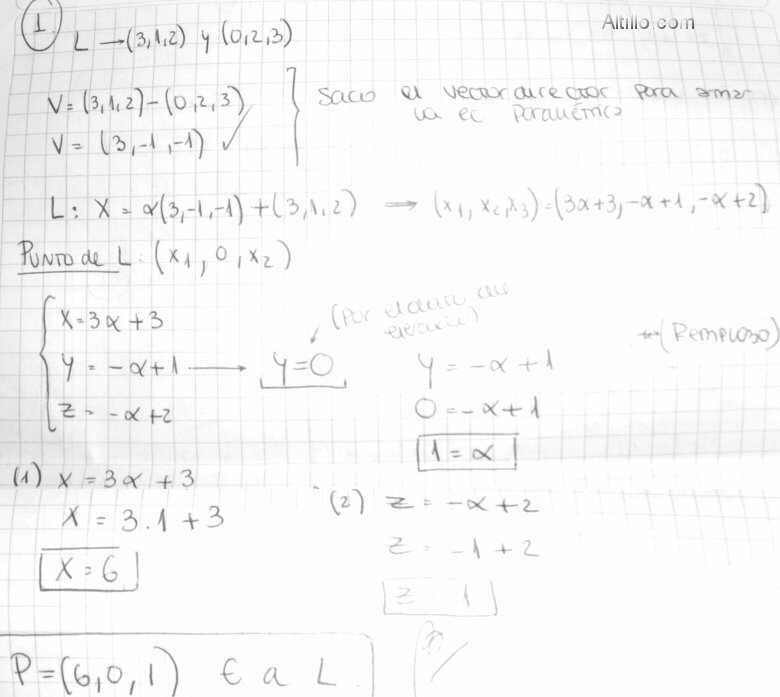 1
Altillo.com
L → (3,1,2) y (0,2,3)
V = (3,1,2) - (0,2,3)
V = (3,-1,-1) ✓
Saco el vector director para armar
la ec Paramétrica
L: X = α(3,-1,-1) + (3,1,2) → (x₁, x₂, x₃) = (3α+3, -α+1, -α+2)
Punto de L: (x₁, 0, x₂)
X = 3α + 3
y = -α + 1 → y = 0
z = -α + 2
(Por el
y = -α + 1
(Remplazo)
0 = -α + 1
1 = α
(1) X = 3α + 3
X = 3.1 + 3
X = 6
(2) z = -α + 2
z = -1 + 2
z 1
P = (6,0,1) ∈ a L